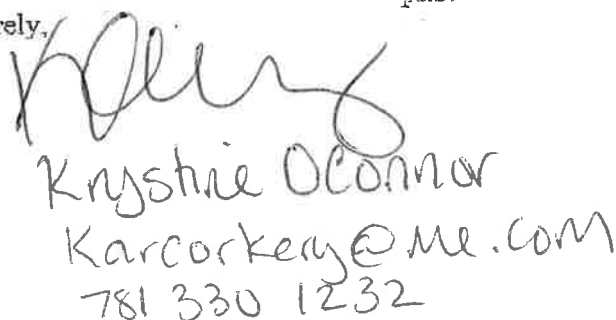 rely,
Krystine OConnor
Karcorkery@me.com
781 330 1232